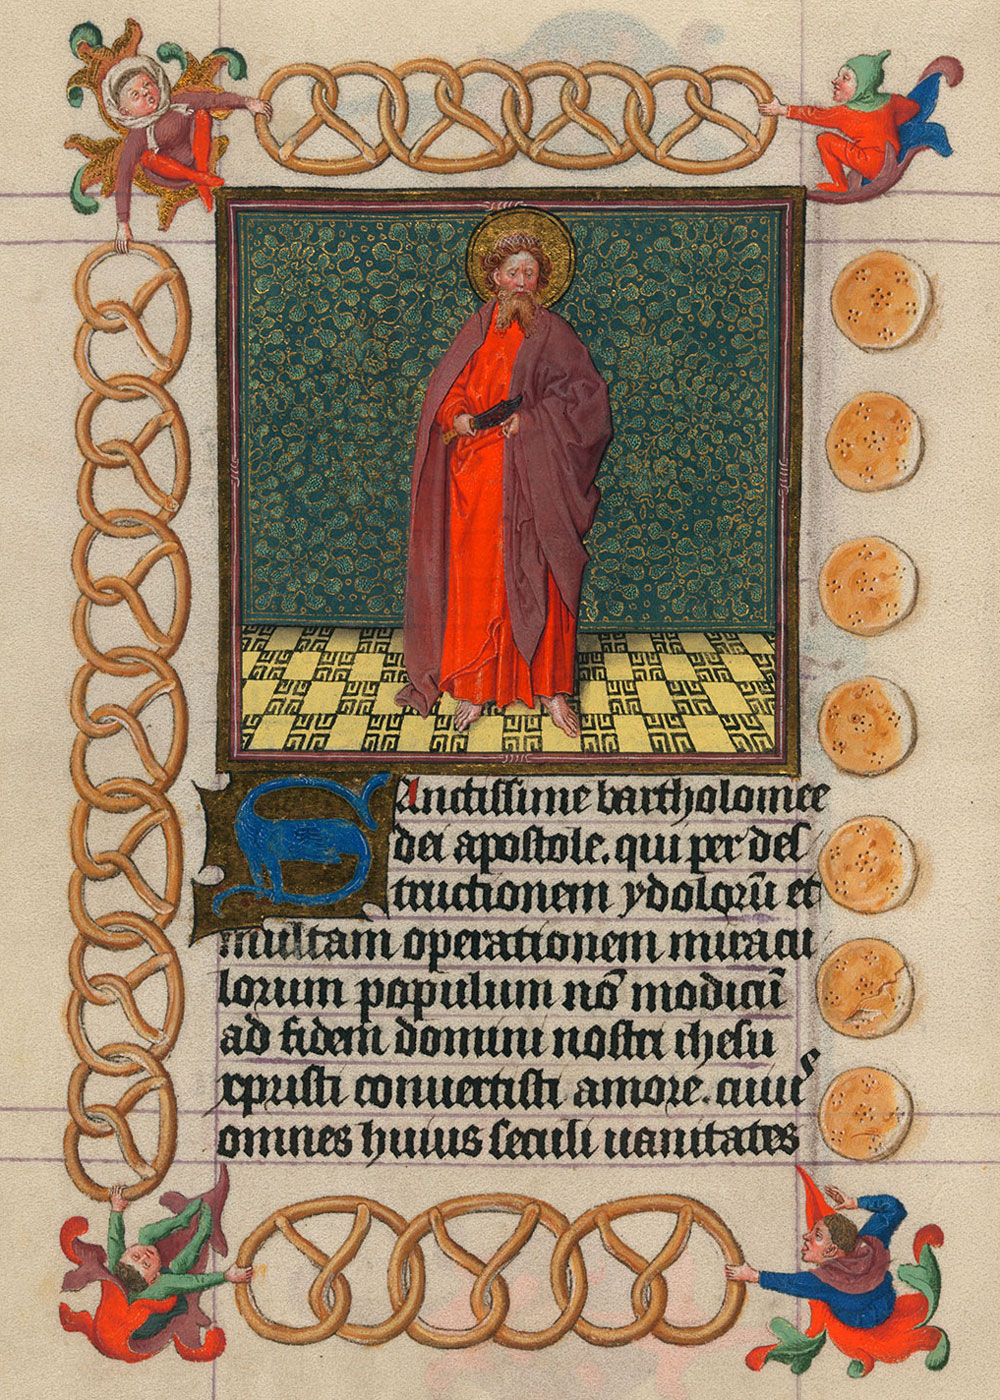 Sanctissime bartholomee
dei apostole. qui per des
tructionem ydolorū et
multam operationem miracu
lorum populum nō modicū
ad fidem domini nostri ihesu
xpristi convertisti amore. cuiuˢ
omnes huius seculi uanitates